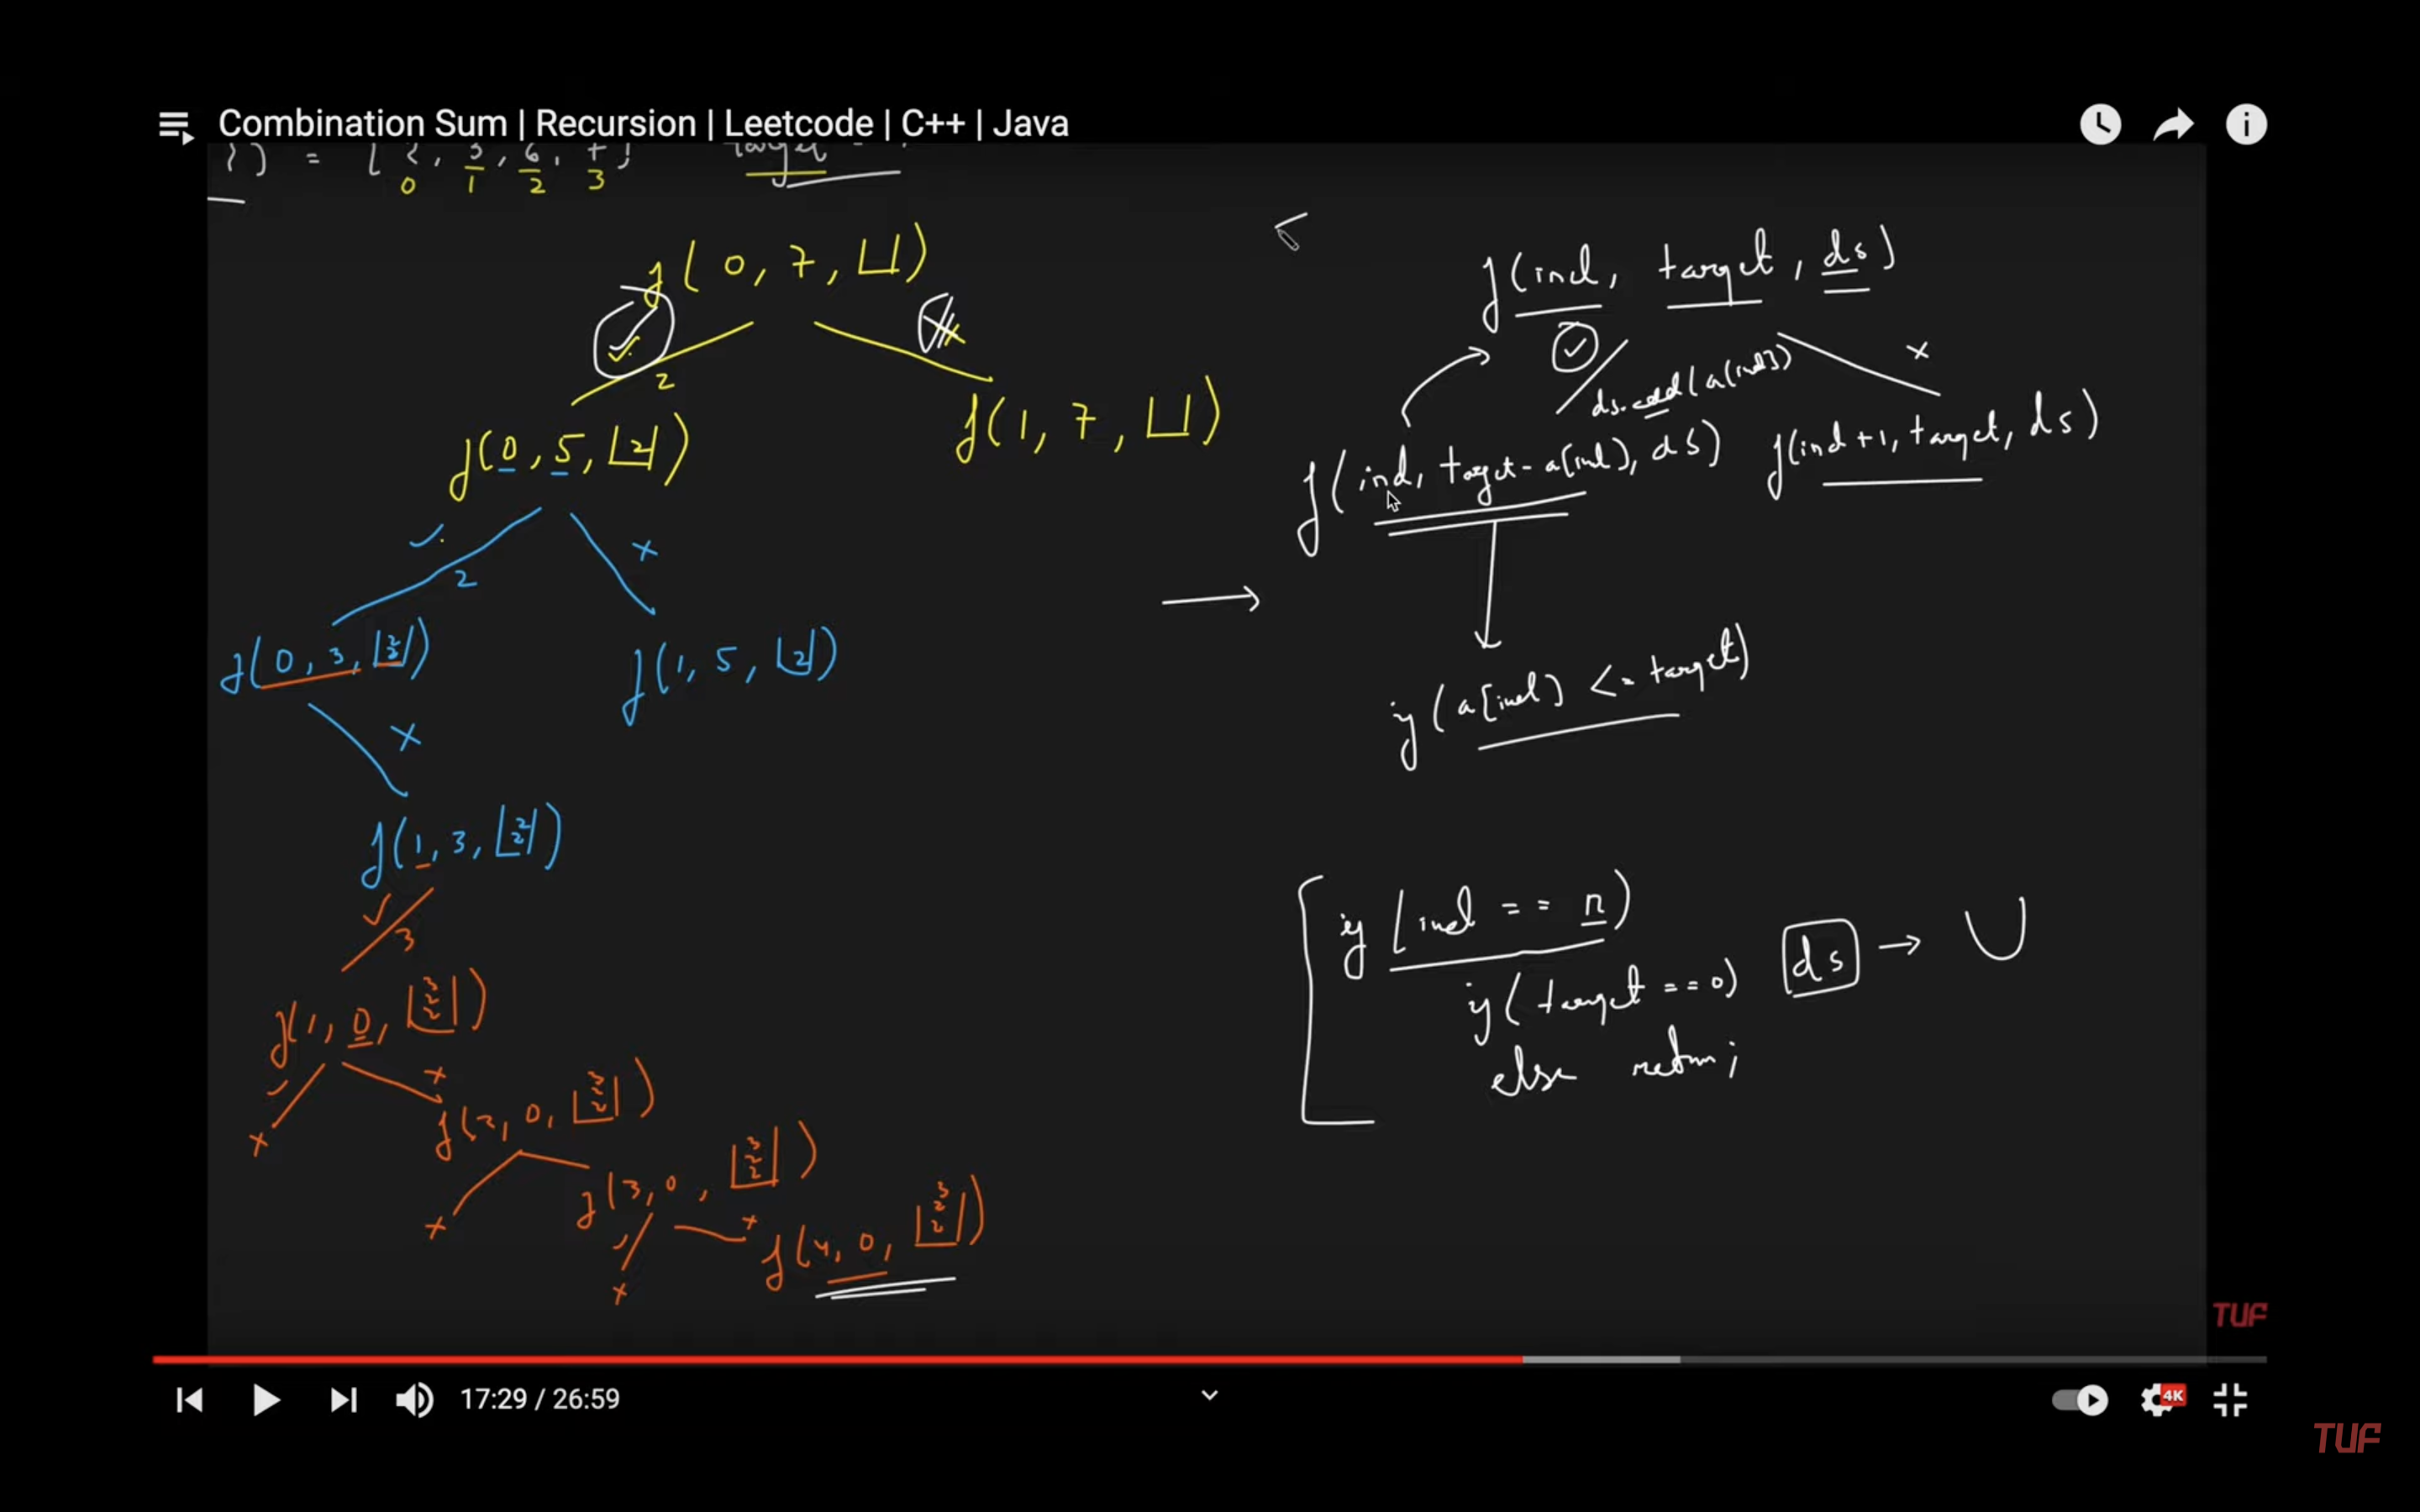 Combination Sum | Recursion | Leetcode | C++ | Java
[] = [2, 3, 6, 7] target
0 1 2 3
f(0, 7, [])
2
f(0, 5, [2]) f(1, 7, [])
2 x
f(0, 3, [2 2]) f(1, 5, [2])
x
f(1, 3, [2 2])
3
f(1, 0, [3 2 2])
x
x f(2, 0, [3 2 2])
x f(3, 0, [3 2 2])
x
x f(4, 0, [3 2 2])
f(ind, target, ds)
x
ds.add(a[ind])
f(ind, target - a[ind], ds) f(ind+1, target, ds)
if (a[ind] <= target)
if (ind == n)
if (target == 0) ds →
else return;
TUF
17:29 / 26:59
4K
TUF